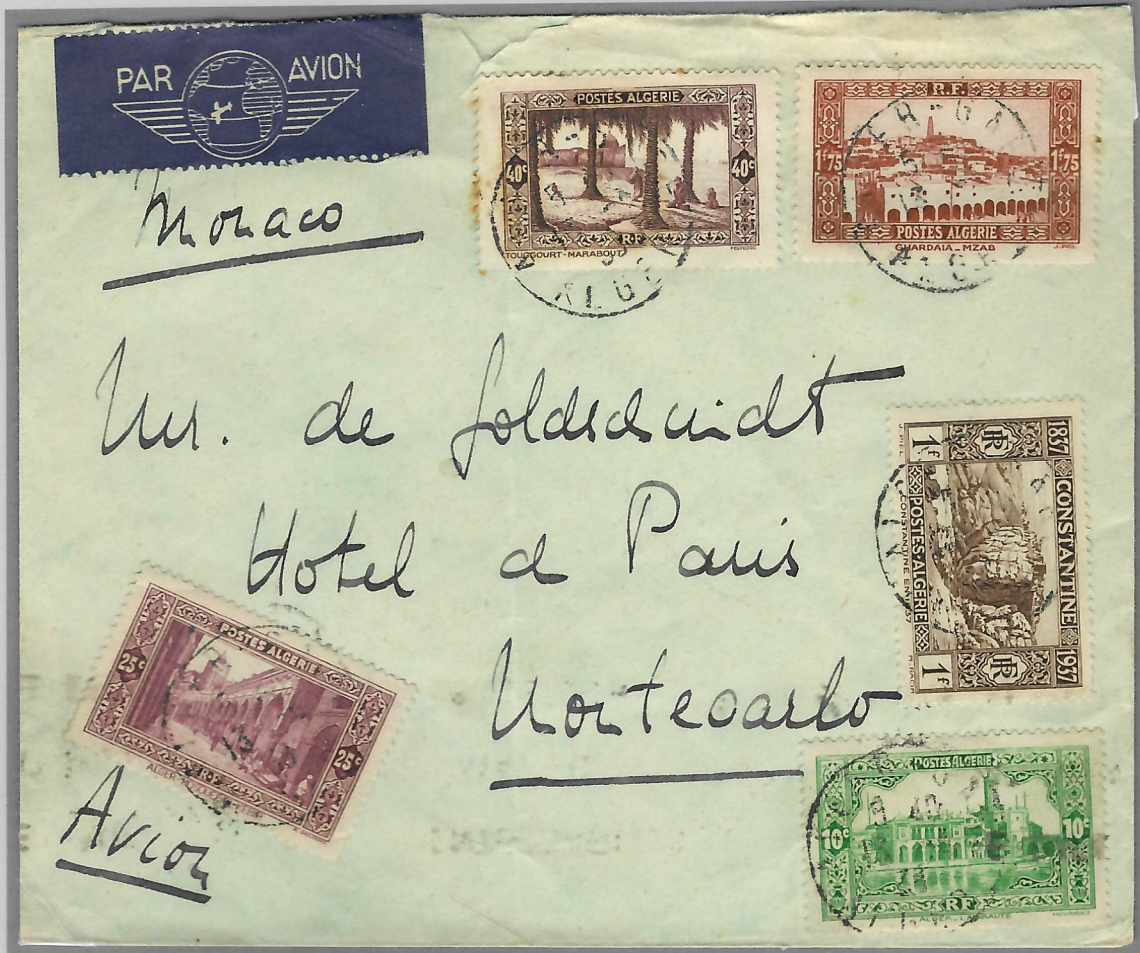 PAR AVION
Monaco
POSTES ALGERIE
40c 40c
RF
TOUGGOURT-MARABOUT
R.F.
1F75 1F75
POSTES ALGERIE
GHARDAIA_MZAB
ALGER
Mr. de Goldschmidt
Hotel de Paris
Montecarlo
1837 CONSTANTINE 1937
RF RF
POSTES·ALGERIE
1F 1F
CONSTANTINE EN 1837
POSTES ALGERIE
25c 25c
RF
Avion
POSTES ALGERIE
10c 10c
RF
ALGER_L'AMIRAUTÉ